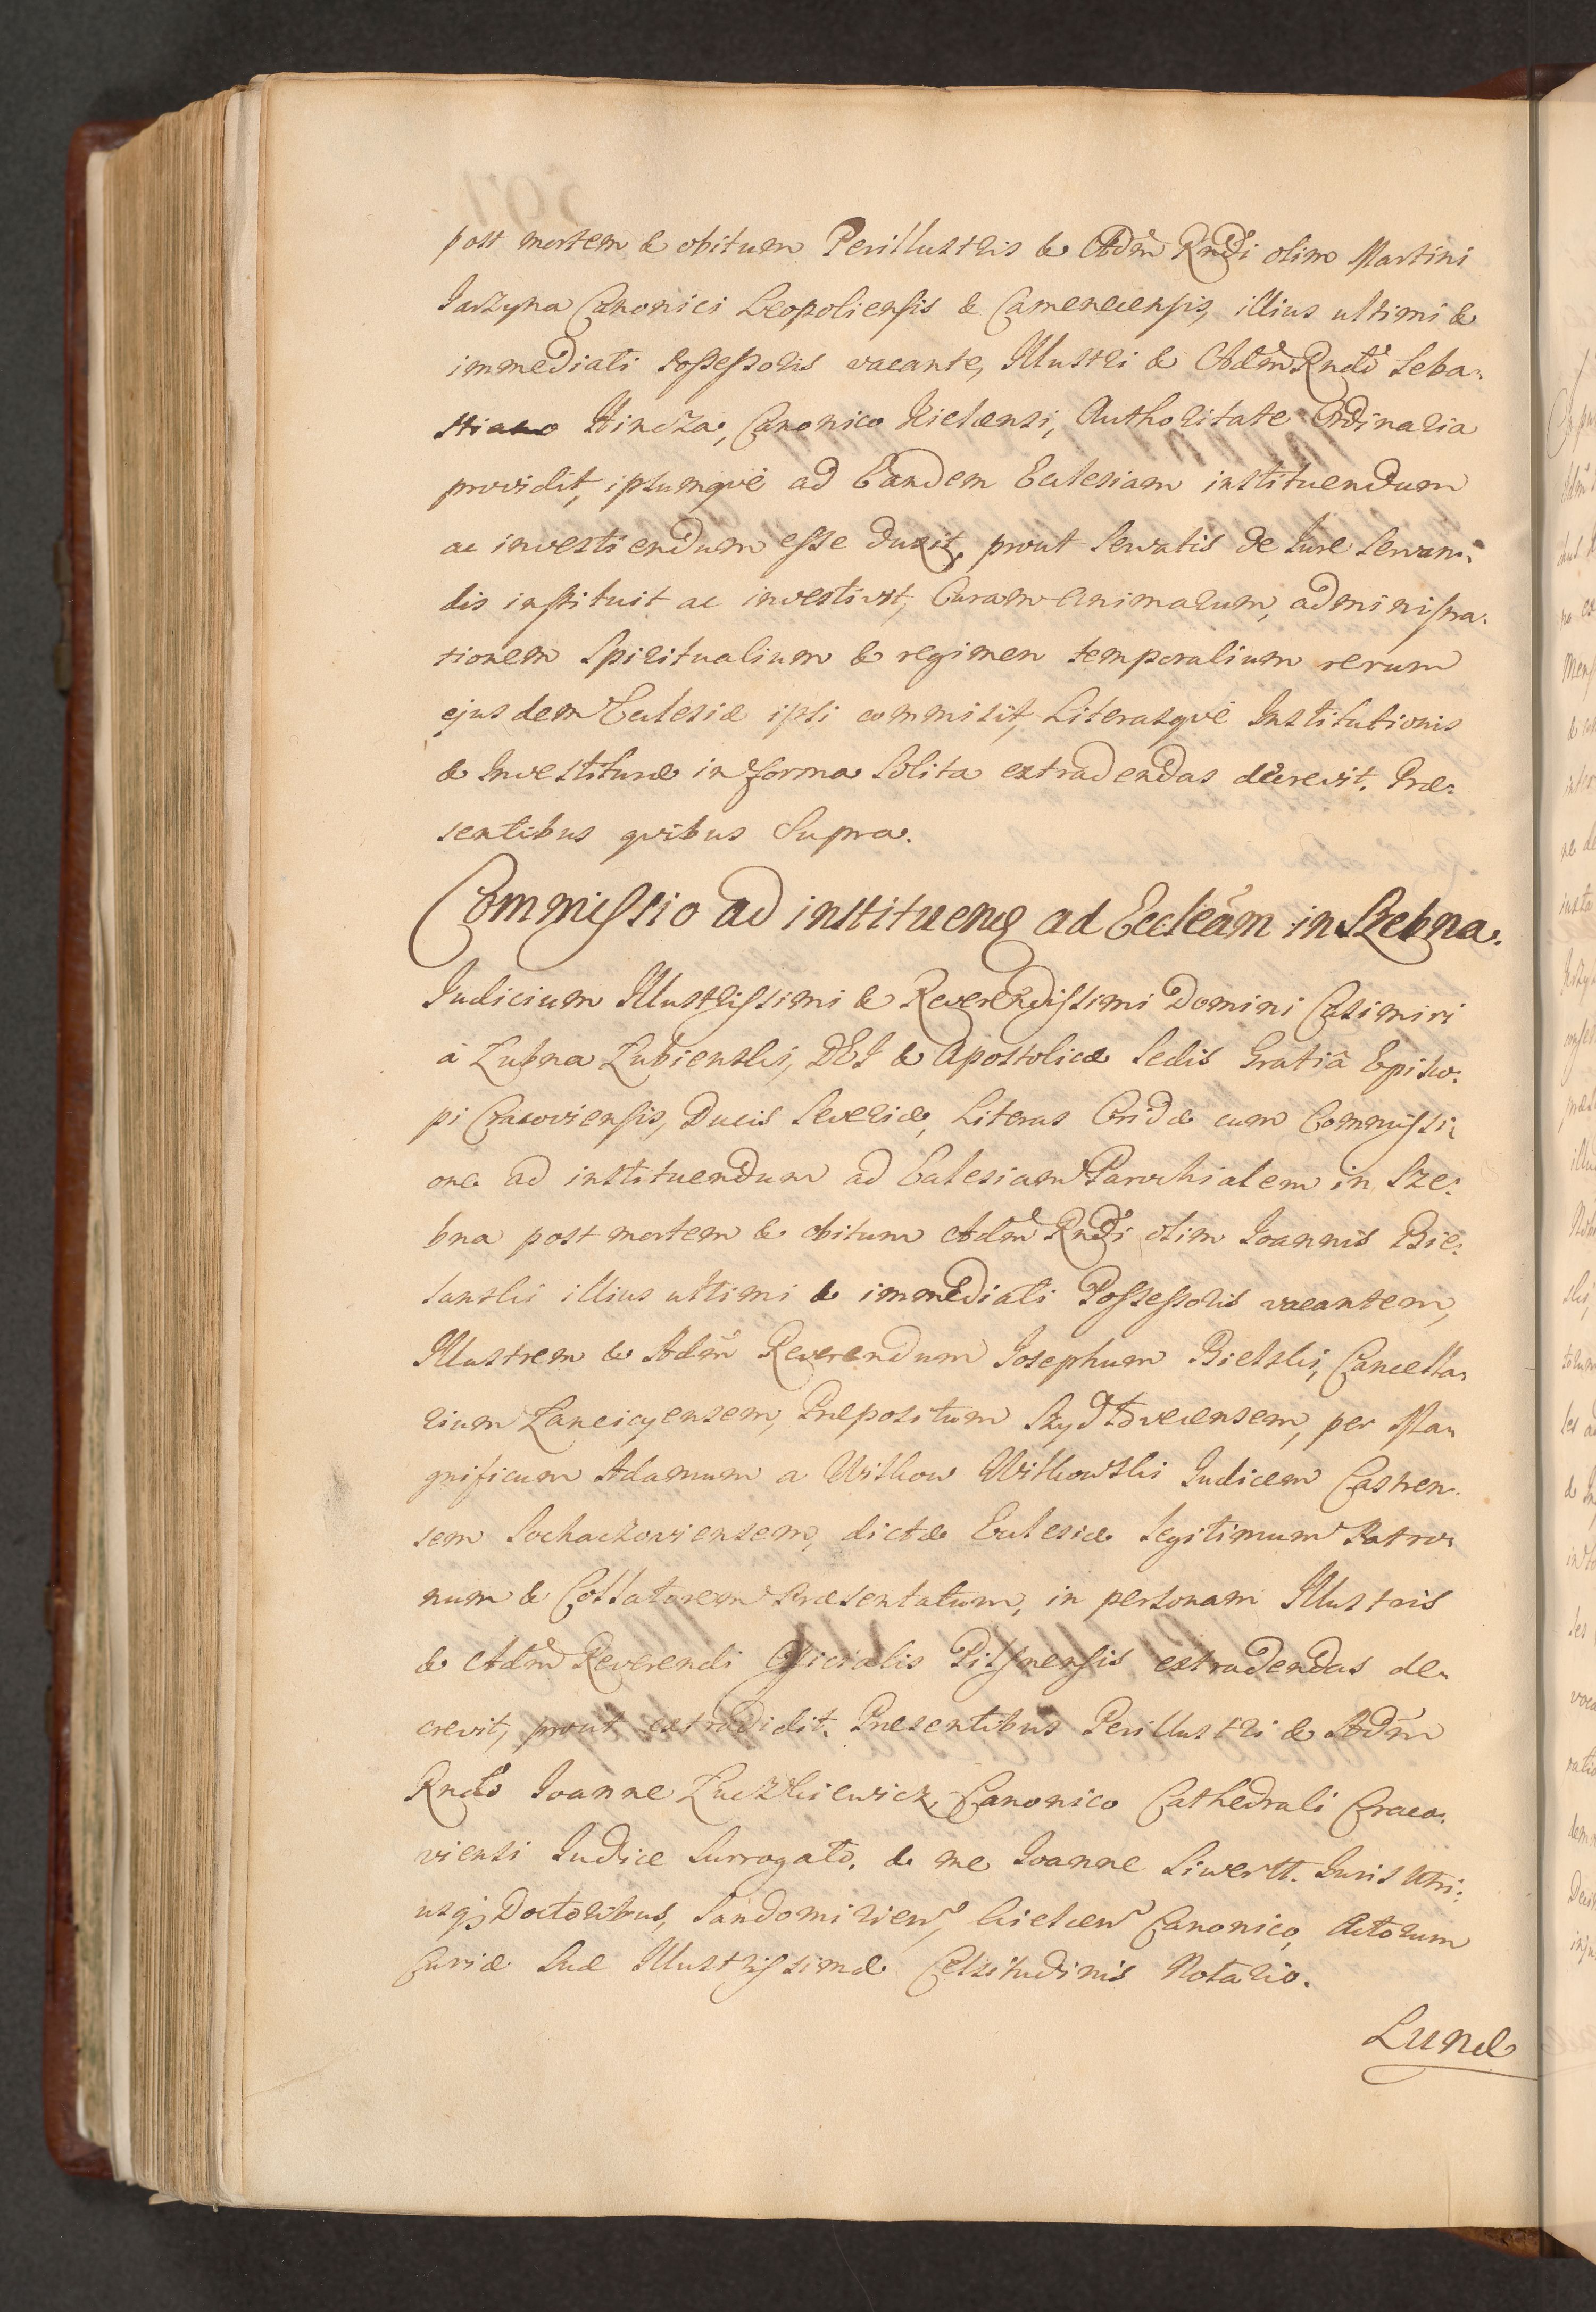 post mortem & obitum Perillustris & Adm̃ Rndi olim Martini
Jaszyna Canonici Leopoliensis & Camenecensis, illius ultimi &
immediati Possessoris vacante, Illustri & Adm̃ Rndo Seba-
stiano Hincza, Canonico Kielcensi, Authoritate Ordinaria
providit, ipsumqve ad Eandem Ecclesiam instituendum
ac investiendum esse duxit, prout Servatis de Jure Servan-
dis instituit ac investivit, Curam Animarum, administra-
tionem Spiritualium & regimen temporalium rerum
ejusdem Ecclesiæ ipsi commisit, Literasqve Institutionis
& Investituræ in forma Solita extradendas decrevit. Præ-
sentibus qvibus Supra.
Commissio ad instituend ad Eccleam in Szebna.
Judicium Illustrissimi & Reverendissimi Domini Casimiri
à Łubna Łubienski, DEI & Apostolicæ Sedis Gratiâ Episco-
pi Cracoviensis, Ducis Severiæ, Literas Cridæ cum Commissi-
one ad instituendum ad Ecclesiam Parochialem in Sze-
bna post mortem & obitum Adm̃ Rndi olim Joannis Bie-
lanski illius ultimi & immediati Possessoris vacantem,
Illustrem & Adm̃ Reverendum Josephum Bielski, Cancella-
rium Lanciciensem, Præpositum Szydłoviecensem, per Ma-
gnificum Adamum a Witkow Witkowski Judicem Castren-
sem Sochaczoviensem, dictæ Ecclesiæ legitimum Patro-
num & Collatorem Præsentatum, in personam Illustris
& Adm̃ Reverendi Officialis Pilsnensis extradendas de-
crevit, prout extradidit. Præsentibus Perillustri & Adm̃
Rndo Joanne Łuczkiewicz, Canonico Cathedrali Craco-
viensi Judice Surrogato. & me Joanne Siwertt. Juris Utri-
usq; Doctoribus, Sandomirien, Kielcen Canonico, Actorum
Curiæ Suæ Illustrissimæ Celsitudinis Notario.
Lunæ